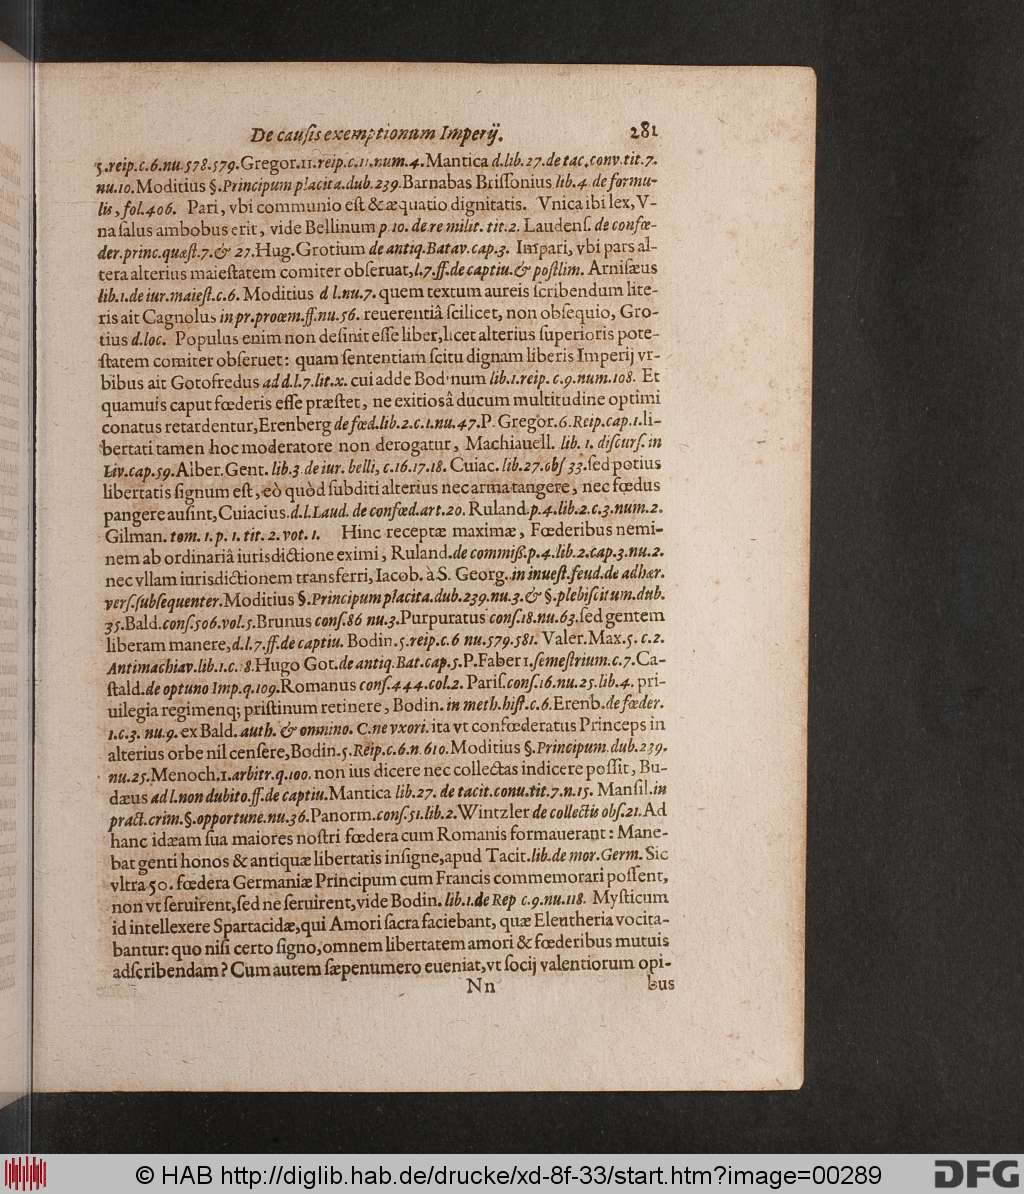 De causis exemptionum Imperij. 281
5.reip.c.6.nu.578.579.Gregor.11.reip.c.11.num.4.Mantica d.lib.27.de tac.conv.tit.7.
nu.10.Moditius §.Principum placita.dub.239.Barnabas Brissonius lib.4.de formu-
lis, fol.406. Pari, vbi communio est & æquatio dignitatis. Vnica ibi lex, V-
na salus ambobus erit, vide Bellinum p.10. de re milit. tit.2. Laudens. de confœ-
der.princ.quæst.7.& 27.Hug.Grotium de antiq.Batav.cap.3. Impari, vbi pars al-
tera alterius maiestatem comiter obseruat,l.7.ff.de captiu.& postlim. Arnisæus
lib.1.de iur.maiest.c.6. Moditius d l.nu.7. quem textum aureis scribendum lite-
ris ait Cagnolus in pr.proœm.ff.nu.56. reuerentiâ scilicet, non obsequio, Gro-
tius d.loc. Populus enim non desinit esse liber,licet alterius superioris pote-
statem comiter obseruet: quam sententiam scitu dignam liberis Imperij vr-
bibus ait Gotofredus ad d.l.7.lit.x. cui adde Bodinum lib.1.reip. c.9.num.108. Et
quamuis caput fœderis esse præstet, ne exitiosâ ducum multitudine optimi
conatus retardentur,Erenberg de fœd.lib.2.c.1.nu.47.P.Gregor.6.Reip.cap.1.li-
bertati tamen hoc moderatore non derogatur, Machiauell. lib. 1. discurs. in
Liv.cap.59.Alber.Gent. lib.3 de iur. belli, c.16.17.18. Cuiac. lib.27.obs 33.sed potius
libertatis signum est, eò quòd subditi alterius nec arma tangere, nec fœdus
pangere ausint,Cuiacius.d.l.Laud. de confœd.art.20. Ruland.p.4.lib.2.c.3.num.2.
Gilman. tom. 1. p. 1. tit. 2. vot. 1. Hinc receptæ maximæ, Fœderibus nemi-
nem ab ordinariâ iurisdictione eximi, Ruland.de commiß.p.4.lib.2.cap.3.nu.2.
nec vllam iurisdictionem transferri, Iacob. à S. Georg.in inuest.feud.de adhær.
vers.subsequenter.Moditius §.Principum placita.dub.239.nu.3.& §.plebiscitum.dub.
35.Bald.cons.506.vol.5.Brunus cons.86 nu.3.Purpuratus cons.18.nu.63.sed gentem
liberam manere,d.l.7.ff.de captiu. Bodin.5.reip.c.6 nu.579.581. Valer.Max.5. c.2.
Antimachiav.lib.1.c. 8.Hugo Got.de antiq.Bat.cap.5.P.Faber 1.semestrium.c.7.Ca-
stald.de optuno Imp.q.109.Romanus cons.444.col.2. Paris.cons.16.nu.25.lib.4. pri-
uilegia regimenq; pristinum retinere, Bodin. in meth.hist.c.6.Erenb.de fœder.
1.c.3. nu.9. ex Bald. auth. & omnino. C.ne vxori. ita vt confœderatus Princeps in
alterius orbe nil censere,Bodin.5.Reip.c.6.n.610.Moditius §.Principum.dub.239.
nu.25.Menoch.1.arbitr.q.100. non ius dicere nec collectas indicere possit, Bu-
dæus ad l.non dubito.ff.de captiu.Mantica lib.27. de tacit.conu.tit.7.n.15. Mansil.in
pract.crim.§.opportune.nu.36.Panorm.cons.51.lib.2.Wintzler de collectis obs.21.Ad
hanc idæam sua maiores nostri fœdera cum Romanis formauerant: Mane-
bat genti honos & antiquæ libertatis insigne,apud Tacit.lib.de mor.Germ. Sic
vltra 50. fœdera Germaniæ Principum cum Francis commemorari possent,
non vt seruirent,sed ne seruirent,vide Bodin. lib.1.de Rep c.9.nu.118. Mysticum
id intellexere Spartacidæ,qui Amori sacra faciebant, quæ Eleutheria vocita-
bantur: quo nisi certo signo,omnem libertatem amori & fœderibus mutuis
adscribendam? Cum autem sæpenumero eueniat,vt socij valentiorum opi-
Nn bus
© HAB http://diglib.hab.de/drucke/xd-8f-33/start.htm?image=00289 DFG